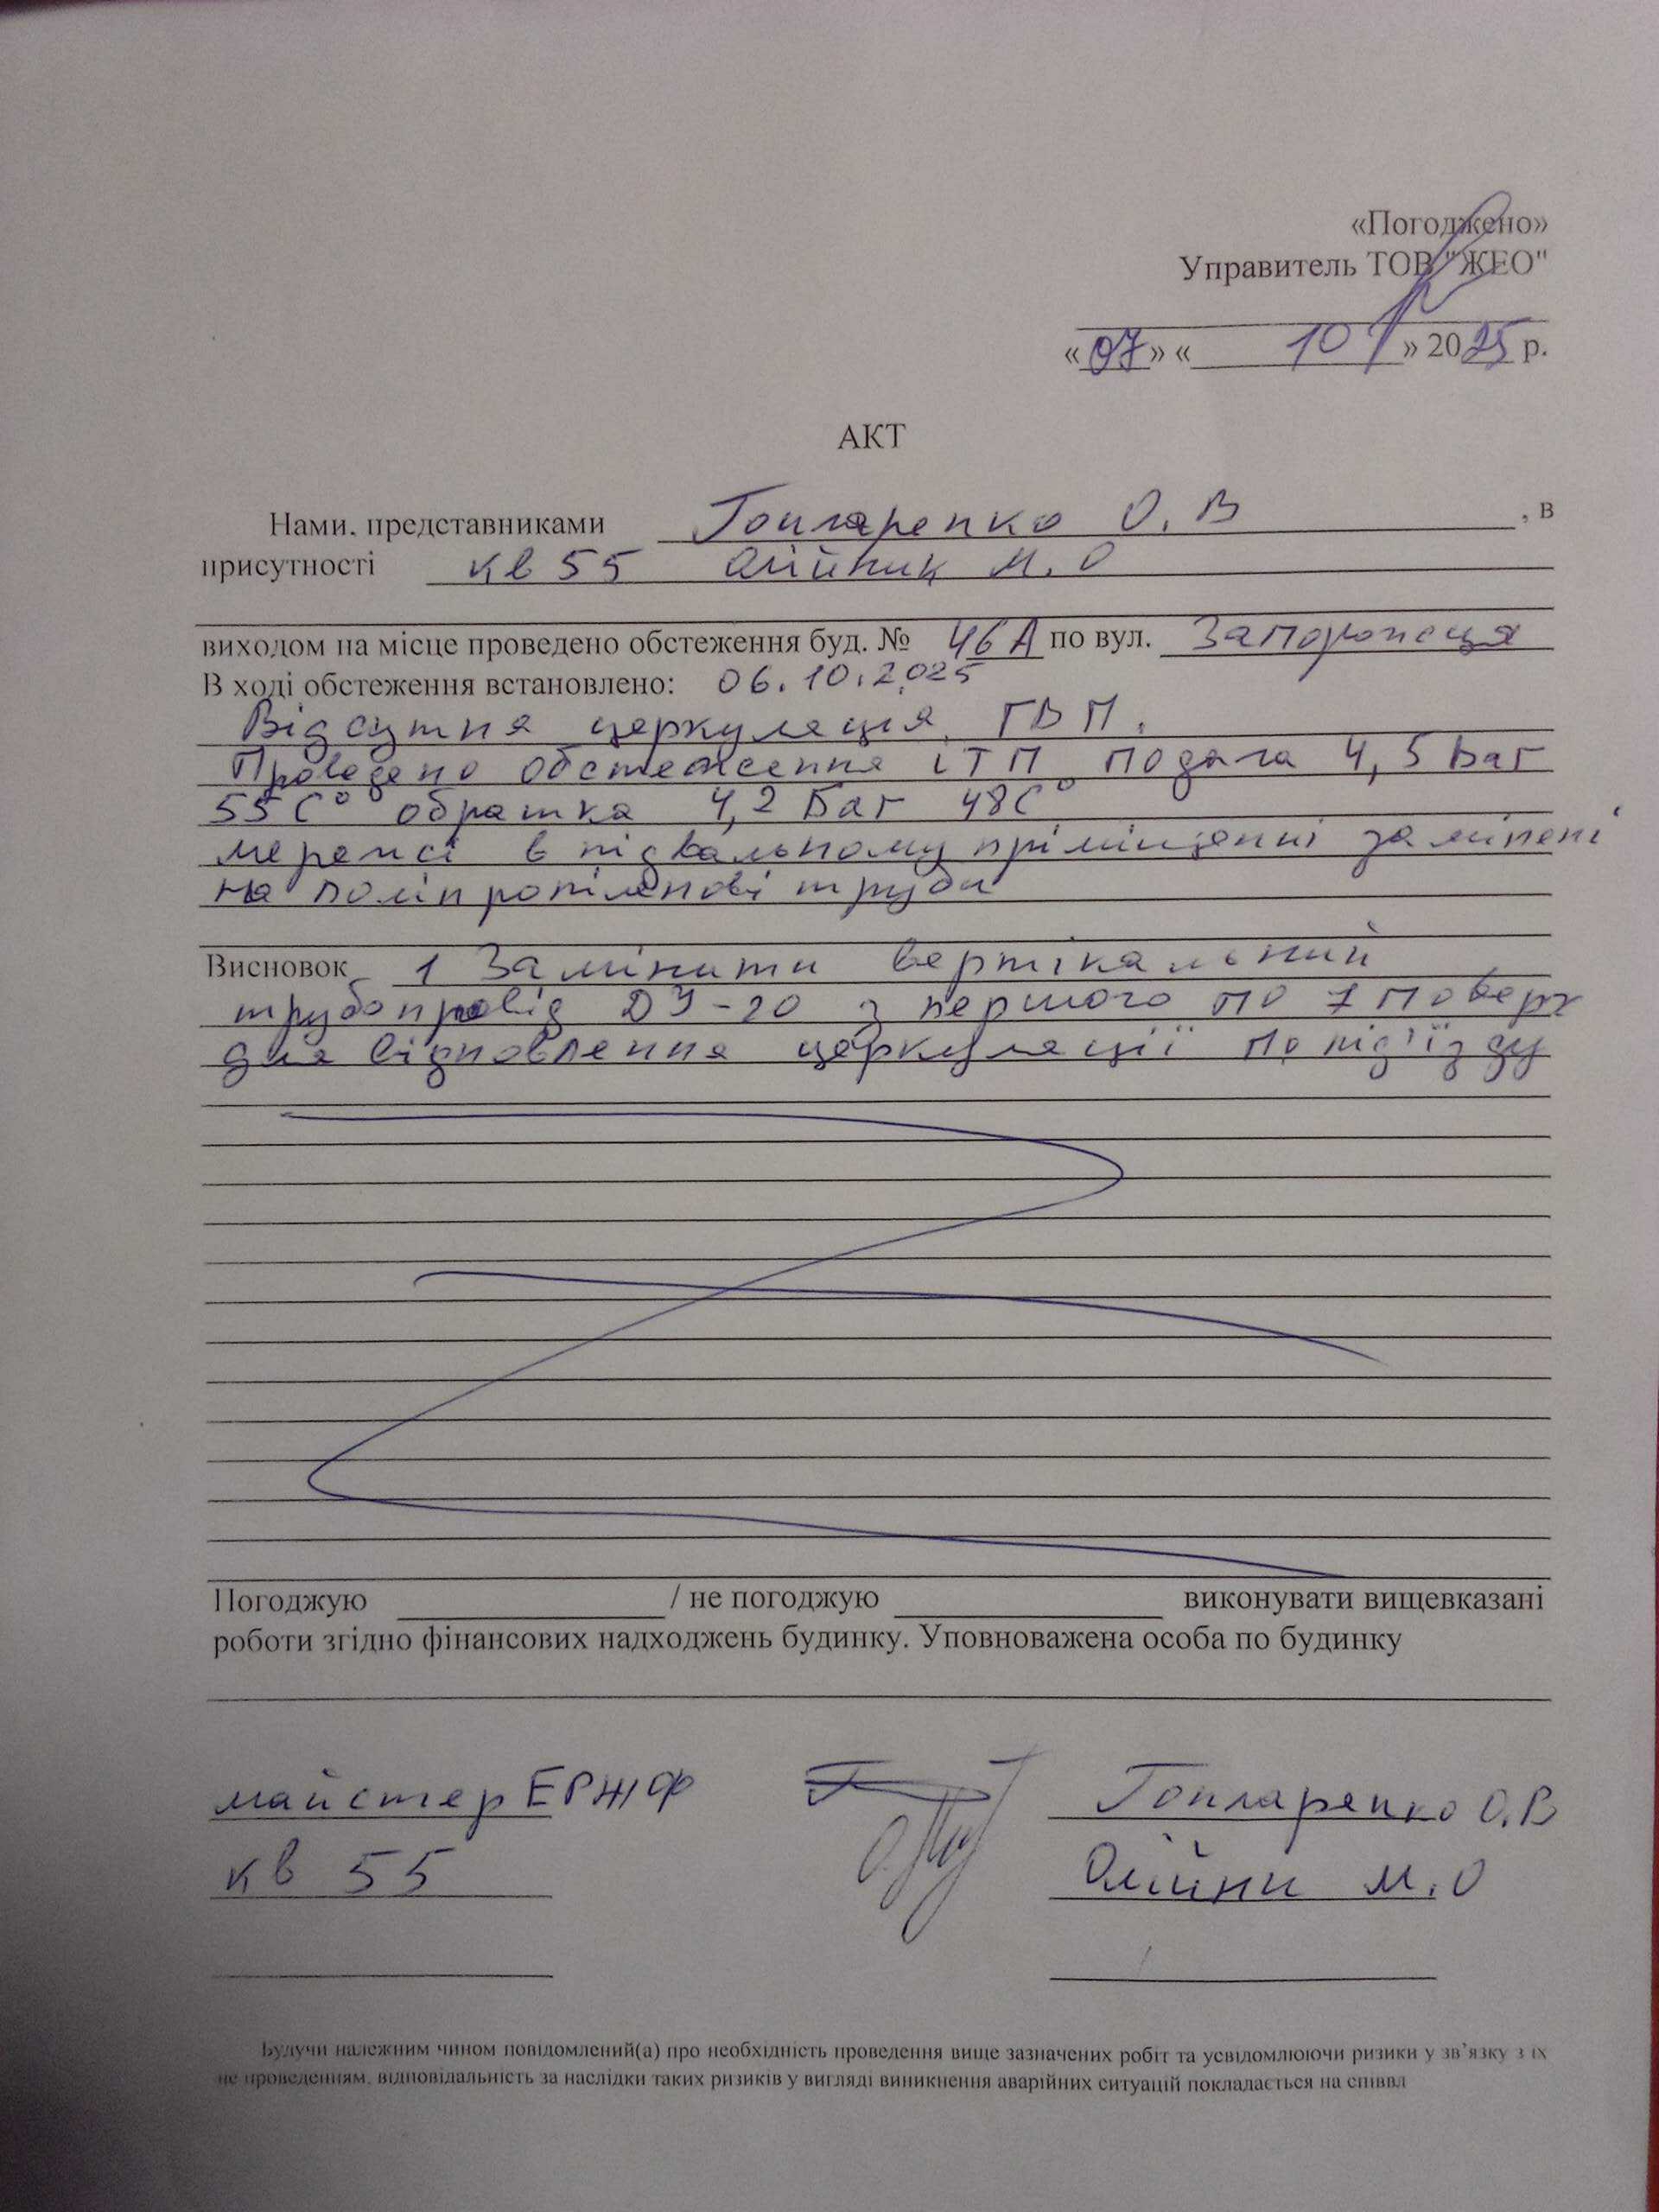 «Погоджено»
Управитель ТОВ "ЖЕО"
«07» « 10 » 2025 р.
АКТ
Нами, представниками Гончаренко О. В , в
присутності кв 55 Олійник М. О
виходом на місце проведено обстеження буд. № 46А по вул. Запорожеця
В ході обстеження встановлено: 06.10.2025
Відсутня церкуляція ГВП.
Проведено обстеження ІТП подача 4,5 Баг
55 С° обратка 4,2 Баг 48С°
мережсі в підвальному пріміщенні замінені
на поліпропіленові труби
Висновок 1 Замінити вертікальний
трубопровід ДУ-20 з першого по 7 поверх
для відновлення церкуляції по під'їзду
Погоджую / не погоджую виконувати вищевказані
роботи згідно фінансових надходжень будинку. Уповноважена особа по будинку
майстер ЕРЖФ Гончаренко О.В
кв 55 Олійни М.О
Будучи належним чином повідомлений(а) про необхідність проведення вище зазначених робіт та усвідомлюючи ризики у зв'язку з їх
не проведенням, відповідальність за наслідки таких ризиків у вигляді виникнення аварійних ситуацій покладається на співвл